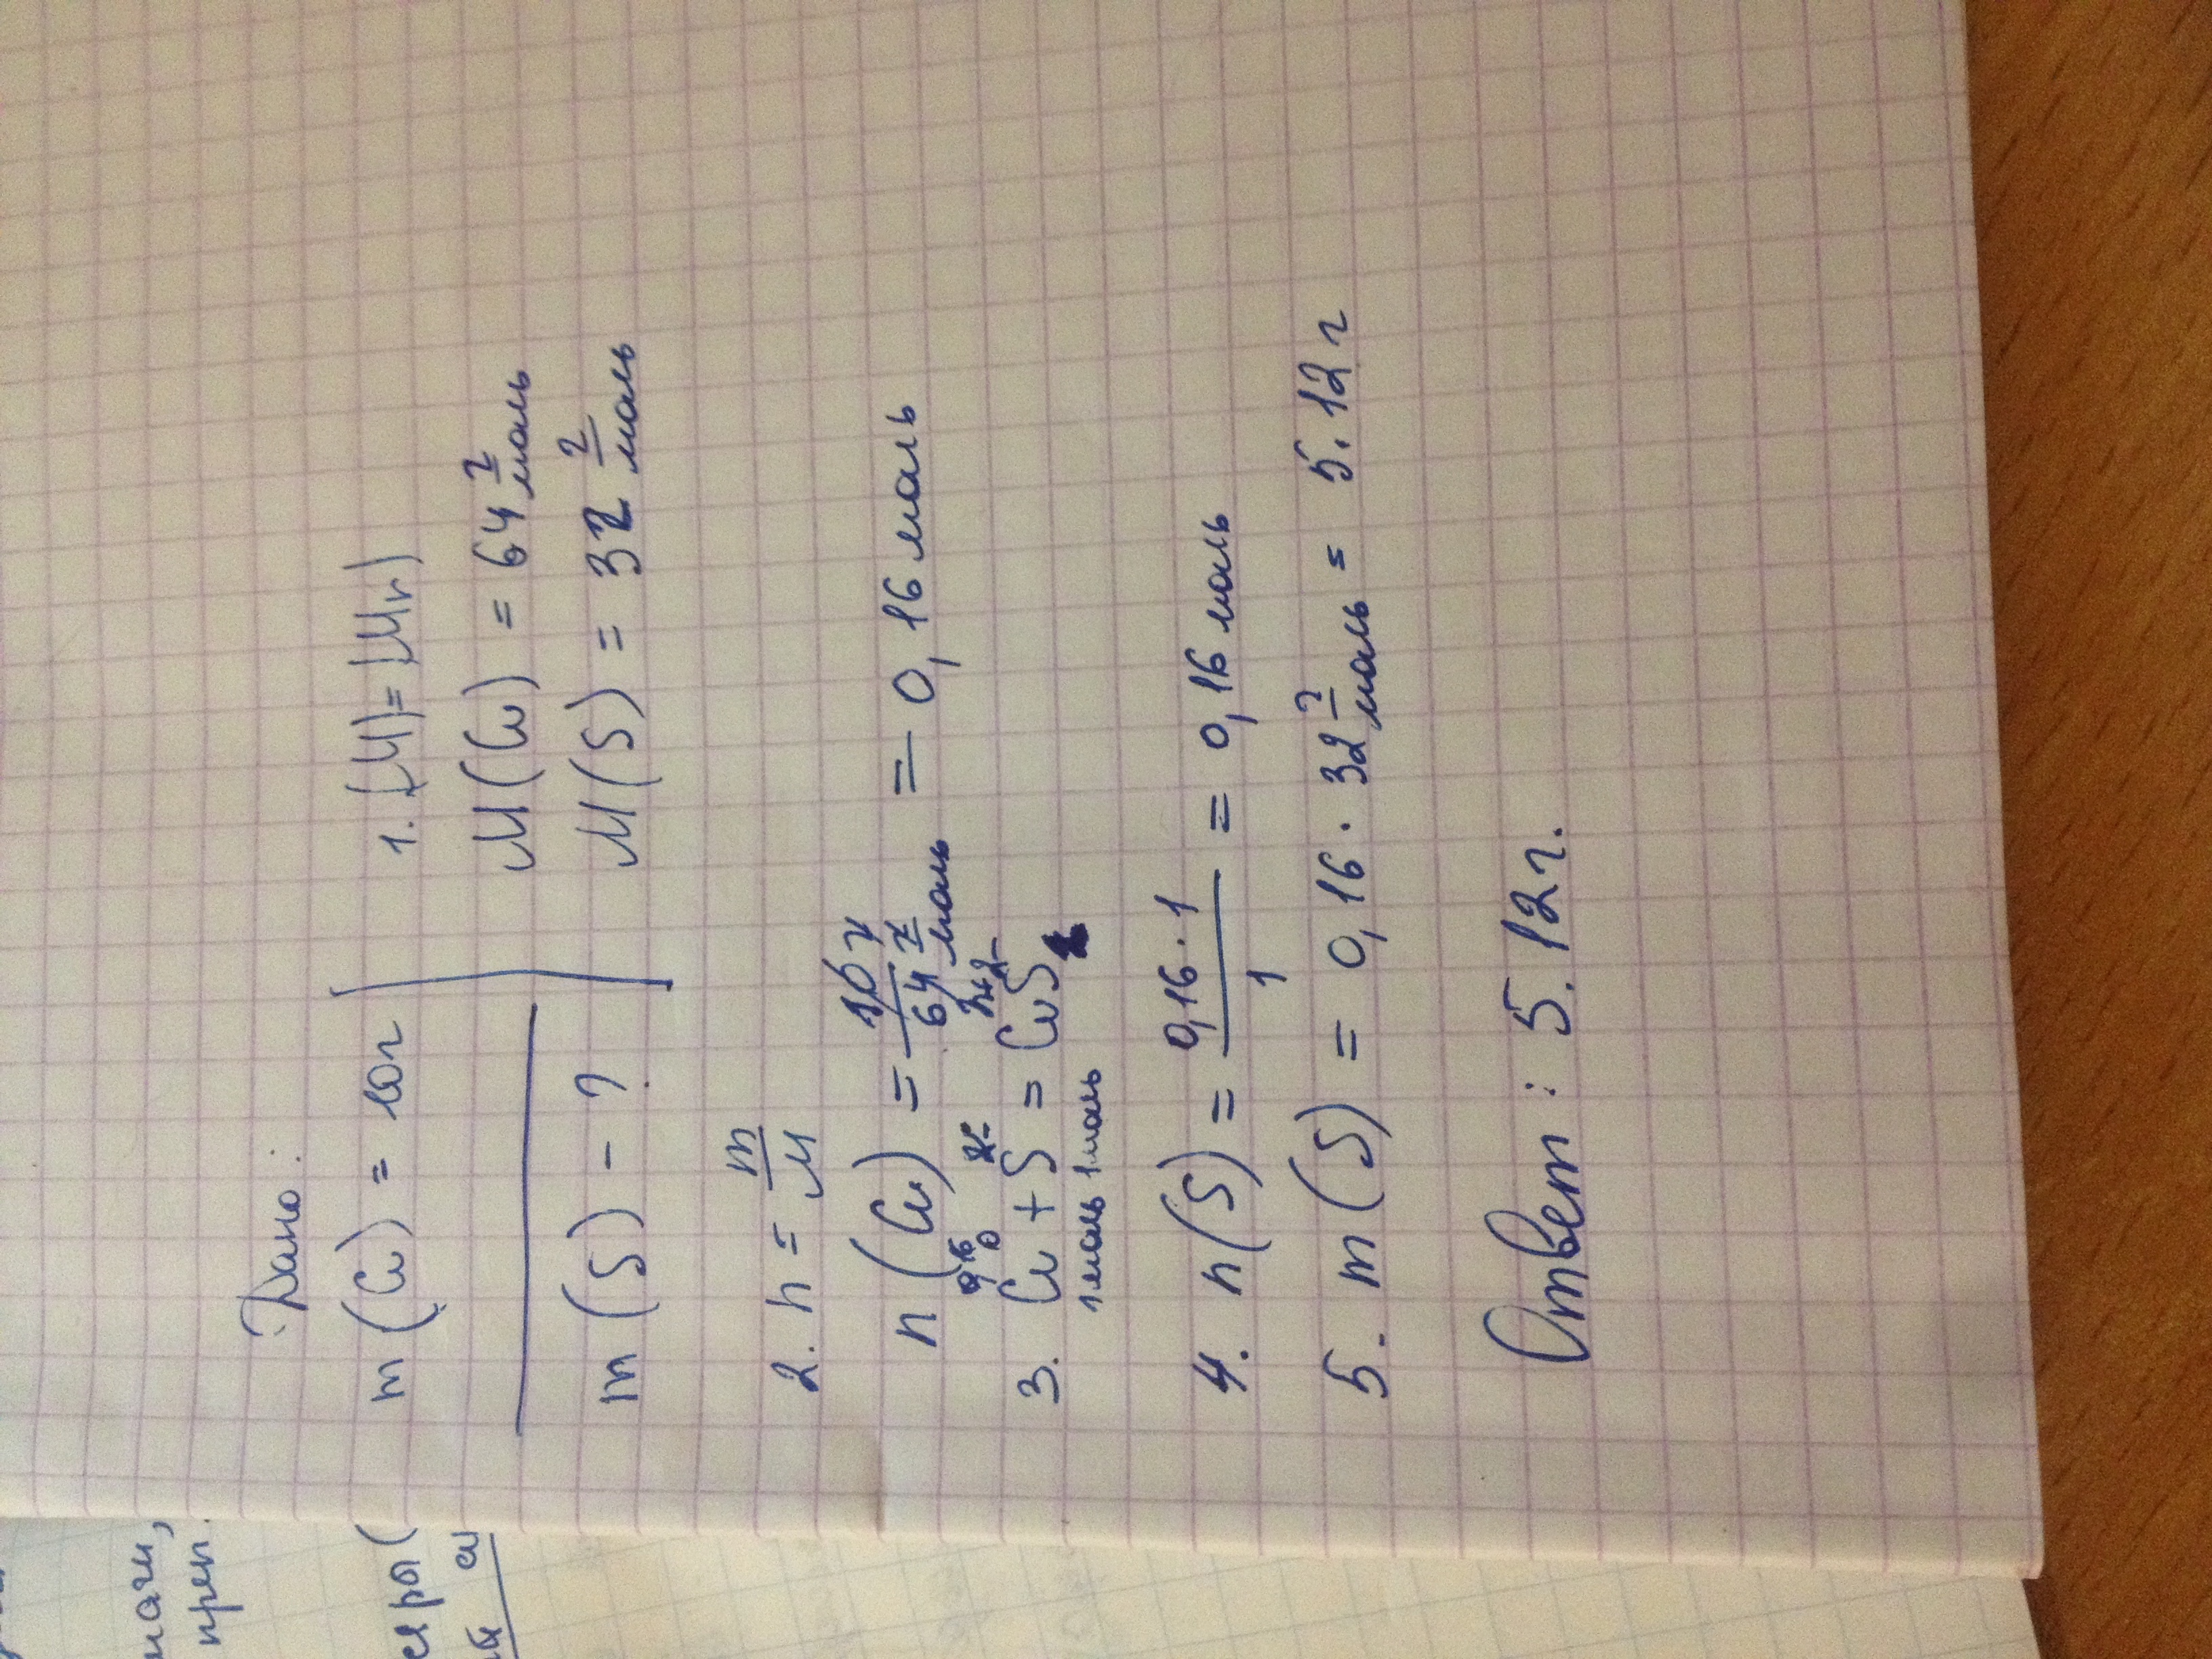 Дано:
m(Cu) = 10г
1. |M| = |Mr|
M(Cu) = 64 г/моль
m(S) - ?
M(S) = 32 г/моль
2. n = m/M
n(Cu) = 10 г / 64 г/моль = 0,16 моль
0,16 x
3. Cu + S = CuS
1моль 1моль
4. n(S) = 0,16 · 1 / 1 = 0,16 моль
5. m(S) = 0,16 · 32 г/моль = 5.12 г
Ответ: 5.12г.